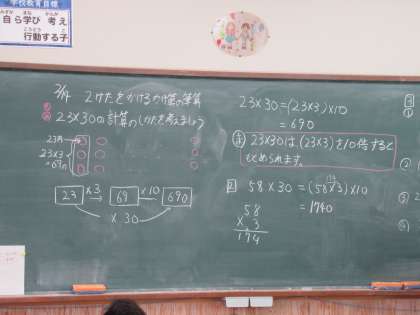 学校教育目標
自ら学び 考え
行動する子
2/14 2けたをかけるかけ算の筆算
23×30の計算のしかたを考えましょう
23円
23×3
=69円
23 ×3 69 ×10 690
×30
23×30=(23×3)×10
=690
23×30は、(23×3)を10倍すると
もとめられます。
2 58×30 =(58×3)×10
174
=1740
58
×3
174